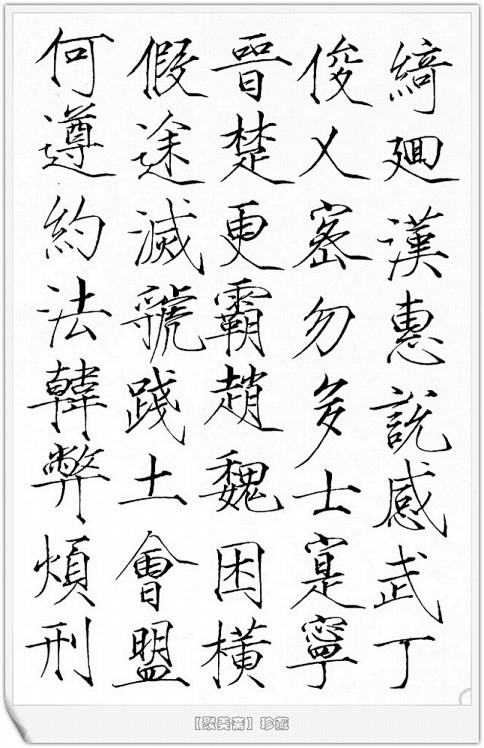 綺迴漢惠說感武丁
俊乂密勿多士寔寧
晉楚更霸趙魏困橫
假途滅虢踐土會盟
何遵約法韓弊煩刑
【聚美斋】珍藏